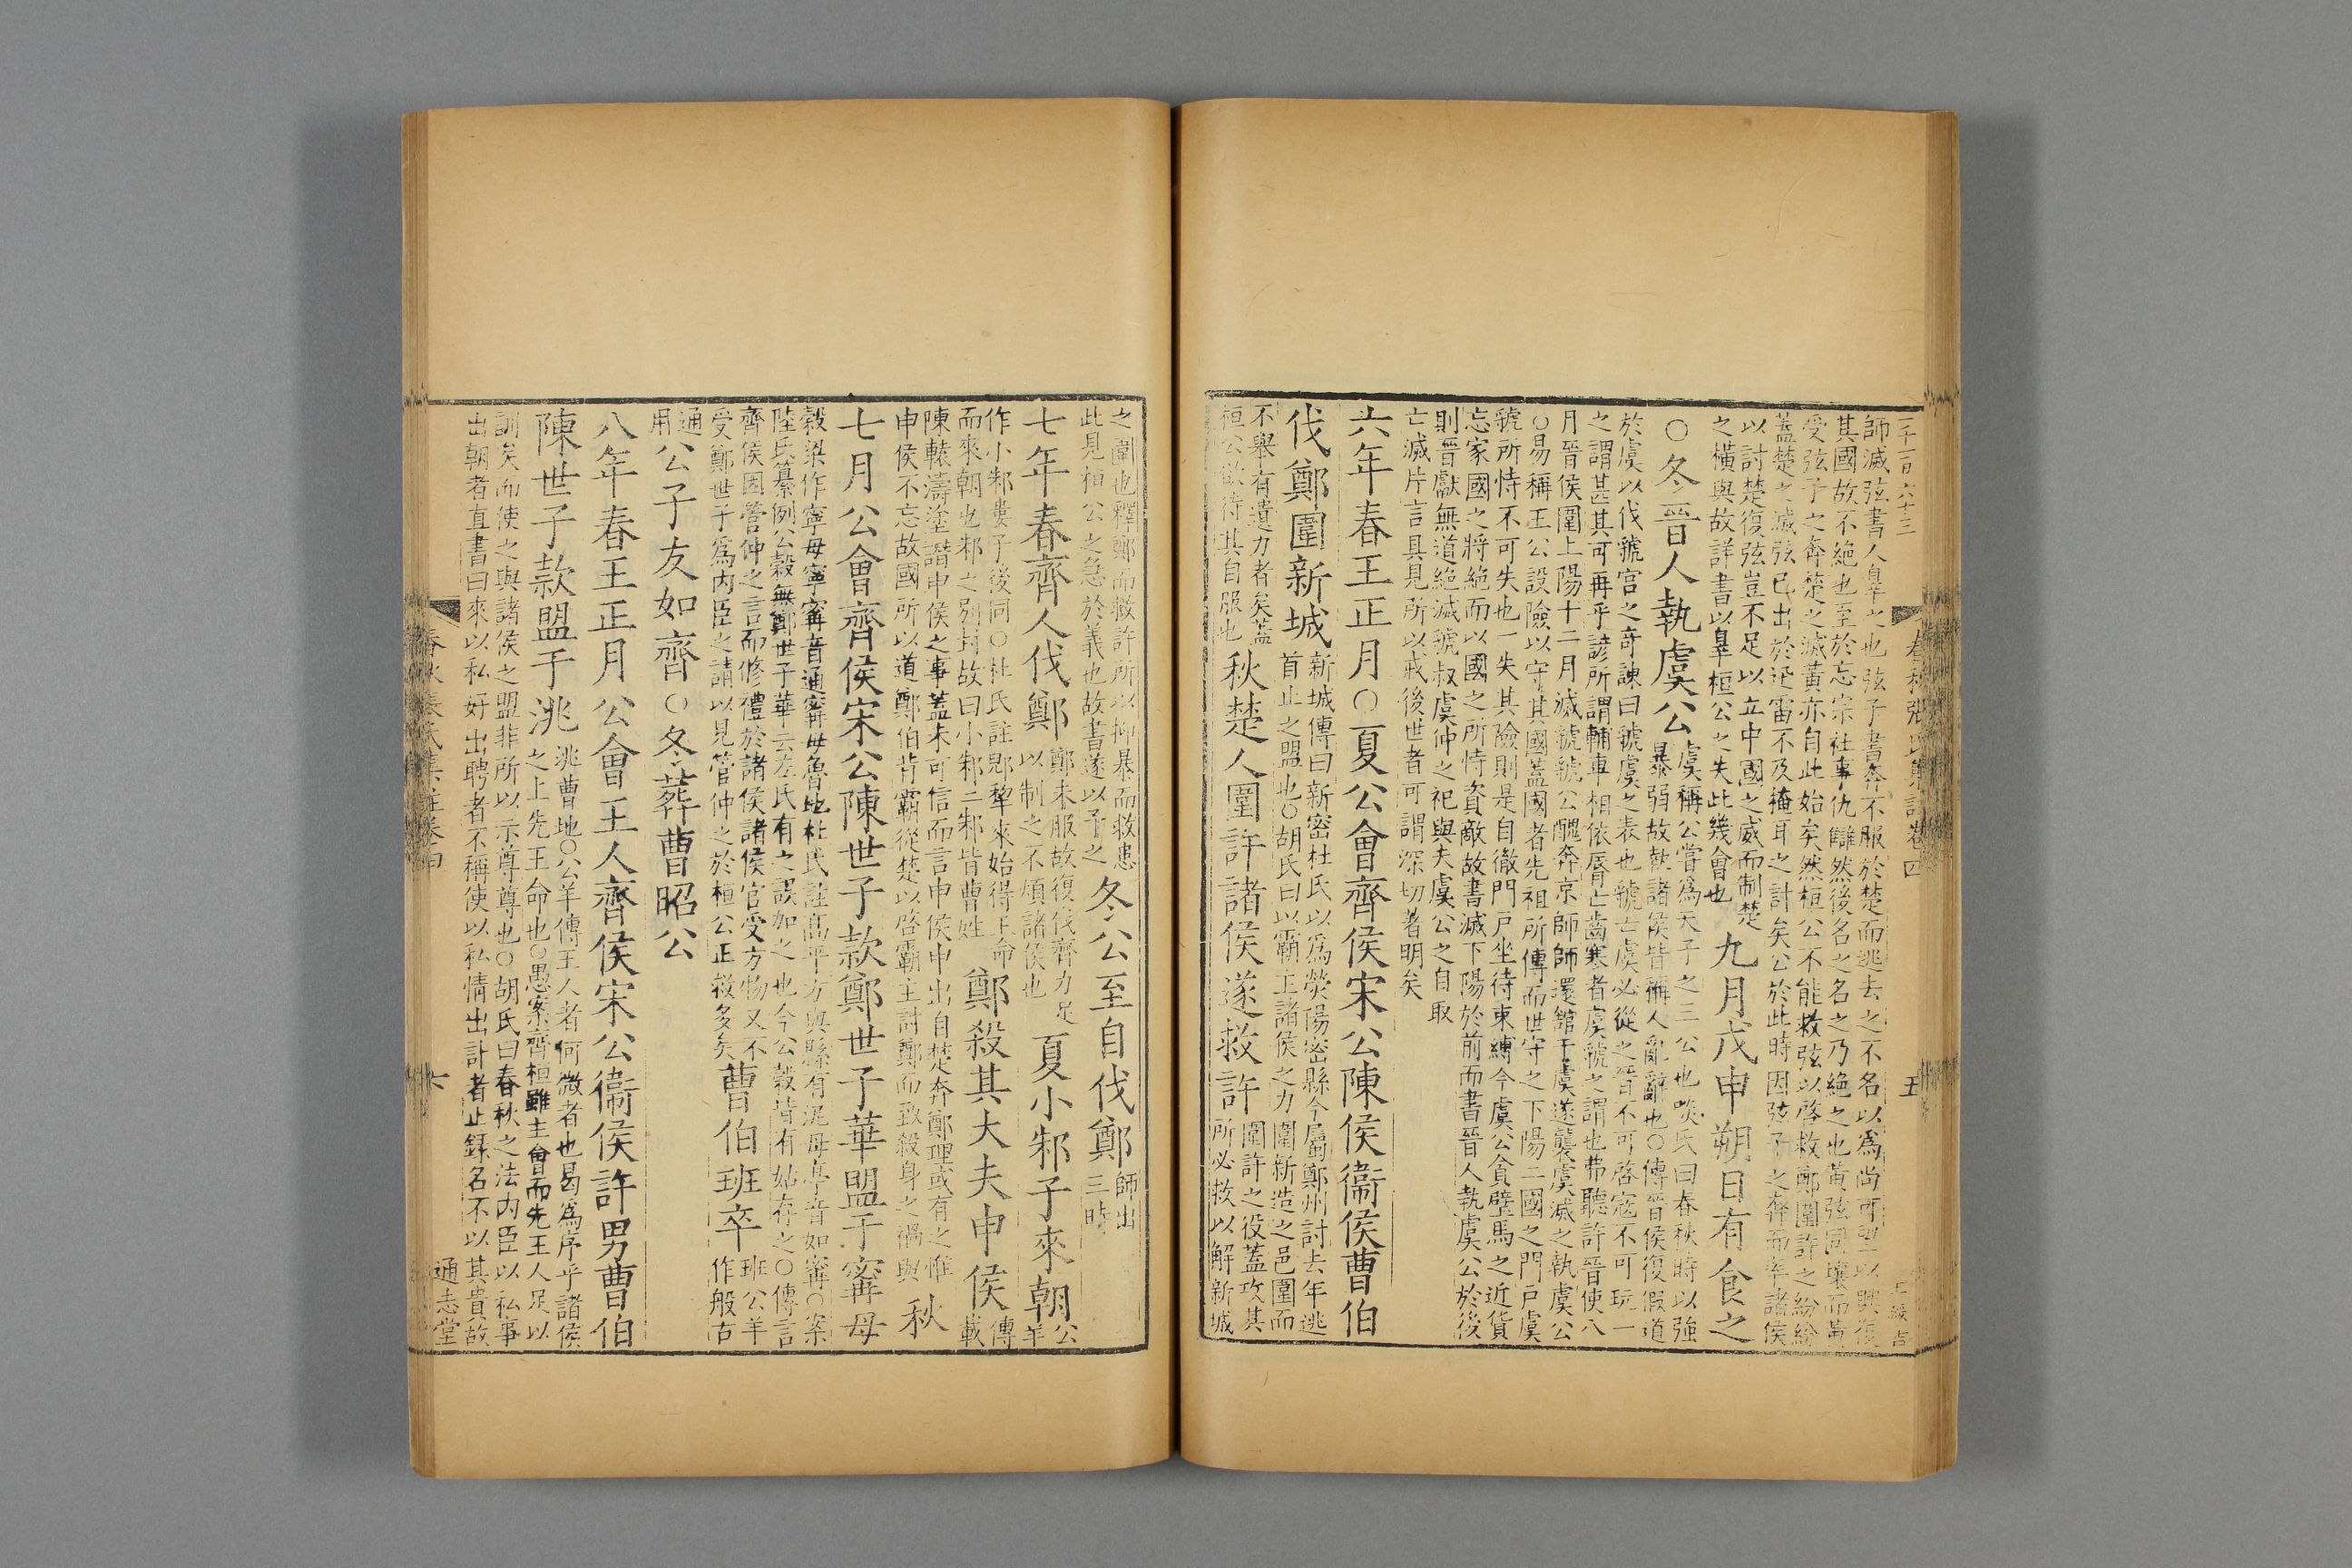 春秋張氏集註卷四
五
師滅弦書人辠之也弦子書奔不服於楚而逃去之不名以爲尚可望以興復
其國故不絶也至於忘宗社事仇讎然後名之名之乃絶之也黃弦同壤而黃
受弦子之奔楚之滅黃亦自此始矣然桓公不能救弦以啓救鄭圍許之紛紛
蓋楚之滅弦已出於迅雷不及掩耳之計矣公於此時因弦子之奔而率諸侯
以討楚復弦豈不足以立中國之威而制楚
之橫與故詳書以辠桓公之失此幾會也
九月戊申朔日有食之
○冬晉人執虞公
虞稱公嘗爲天子之三公也啖氏曰春秋時以強
暴弱故執諸侯皆稱人亂辭也○傳晉侯復假道
於虞以伐虢宮之奇諫曰虢虞之表也虢亡虞必從之晉不可啓寇不可玩一
之謂甚其可再乎諺所謂輔車相依脣亡齒寒者虞虢之謂也弗聽許晉使八
月晉侯圍上陽十二月滅虢虢公醜奔京師師還館于虞遂襲虞滅之執虞公
○易稱王公設險以守其國蓋國者先祖所傳而世守之下陽二國之門戸虞
虢所恃不可失也一失其險則是自徹門戸坐待束縛今虞公貪璧馬之近貨
忘家國之將絶而以國之所恃資敵故書滅下陽於前而書晉人執虞公於後
則晉獻無道絶滅虢叔虞仲之祀與夫虞公之自取
亡滅片言具見所以戒後世者可謂深切著明矣
六年春王正月○夏公會齊侯宋公陳侯衞侯曹伯
伐鄭圍新城
新城傳曰新密杜氏以爲滎陽密縣今屬鄭州討去年逃
首止之盟也○胡氏曰以霸主諸侯之力圍新造之邑圍而
不舉有遺力者矣蓋
桓公欲待其自服也
秋楚人圍許諸侯遂救許
圍許之役蓋攻其
所必救以解新城
之圍也釋鄭而救許所以抑暴而救患
此見桓公之急於義也故書遂以予之
冬公至自伐鄭
師出
三時
七年春齊人伐鄭
鄭未服故復伐齊力足
以制之不煩諸侯也
夏小邾子來朝
公
羊
作小邾婁子後同○杜氏註郳犂來始得王命
而來朝也邾之別封故曰小邾二邾皆曹姓
鄭殺其大夫申侯
傳
載
陳轅濤塗譖申侯之事蓋未可信而言申侯申出自楚奔鄭理或有之惟
申侯不忘故國所以道鄭伯背霸從楚以啓霸主討鄭而致殺身之禍與
秋
七月公會齊侯宋公陳世子款鄭世子華盟于甯母
穀梁作寧母寧甯音通甯母魯地杜氏註高平方與縣有泥母亭音如甯○案
陸氏纂例公穀無鄭世子華云左氏有之誤加之也今公穀皆有姑存之○傳言
齊侯因管仲之言而修禮於諸侯諸侯官受方物又不
受鄭世子爲内臣之請以見管仲之於桓公正救多矣
曹伯班卒
班公羊
作般古
通
用
公子友如齊○冬葬曹昭公
八年春王正月公會王人齊侯宋公衞侯許男曹伯
陳世子款盟于洮
洮曹地○公羊傳王人者何微者也曷爲序乎諸侯
之上先王命也○愚案齊桓雖主會而先王人足以
訓矣而使之與諸侯之盟非所以示尊尊也○胡氏曰春秋之法内臣以私事
出朝者直書曰來以私好出聘者不稱使以私情出計者止録名不以其貴故
春秋張氏集註卷四
六
通志堂